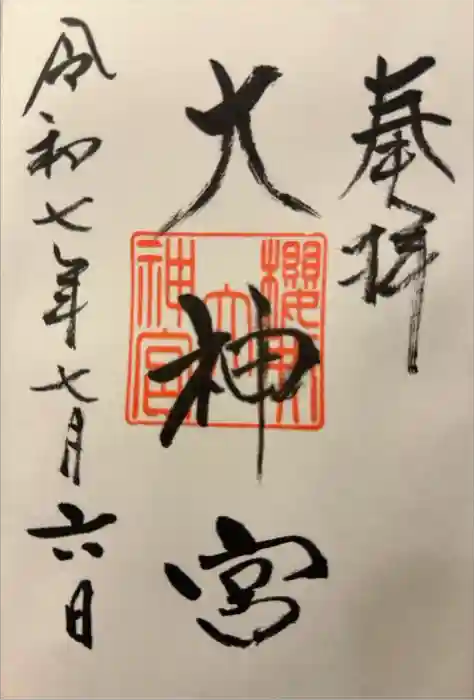 奉拝
大神宮
櫻岡
大
神宮
令和七年七月六日